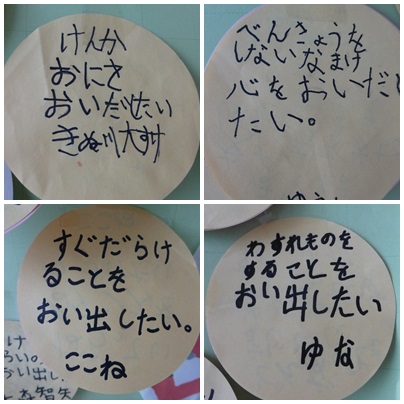 けんか
おにさ
おいだせたい
きぬ川大すけ
べんきょうを
しないなまけ
心をおいだし
たい。
すぐだらけ
ることを
おい出したい。
ここね
わすれものを
することを
おい出したい
ゆな
おい出し